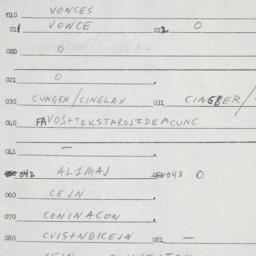 010 VONCES
011 VONCE 012 O
020 O
021 O
030 CUNGEN/CINGLAX 031 CINGBER/
040 FAVOS+TEKSTAROJZDEMCUNG
041 —
042 ALIMAJ 043 O
060 CEJN
070 CONINACON
080 CVIS+NDICEJN 081 —